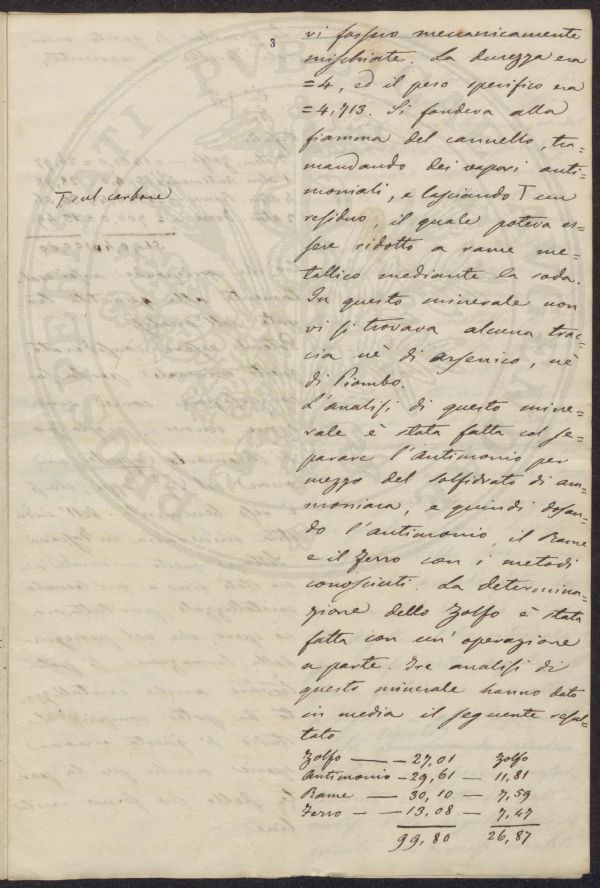 3
vi fossero meccanicamente
mischiate. La durezza era
=4, ed il peso specifico era
=4,713. Si fondeva alla
fiamma del cannello, tra=
mandando dei vapori anti=
moniali, e lasciando T un
T sul carbone
residuo, il quale poteva es=
sere ridotto a rame me=
tallico mediante la soda.
In questo minerale non
vi si trovava alcuna trac=
cia nè di arsenico, nè
di Piombo.
L'analisi di questo mine=
rale è stata fatta col se=
parare l'Antimonio per
mezzo del solfidrato di am=
moniaca, e quindi dosan=
do l'antimonio, il Rame
e il Ferro con i metodi
conosciuti. La determina=
zione dello Zolfo è stata
fatta con un' operazione
a parte. Tre analisi di
questo minerale hanno dato
in media il seguente resul=
tato
Zolfo — — 27,01 Zolfo
Antimonio – 29,61 — 11,81
Rame — 30,10 — 7,59
Ferro – – 13,08 – 7,47
99,80 26,87